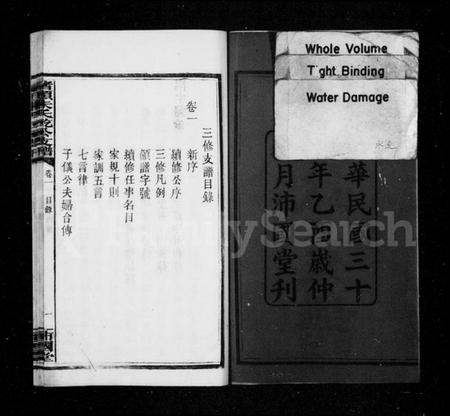 Whole Volume
Tight Binding
Water Damage
華民國三十
年乙酉歲仲
月沛堂刊
三修支譜目錄
卷一
新序
續修公序
三修凡例
頒譜字號
續修任事名目
家規十則
家訓五言
七言律
子儀公夫婦合傳
卷一
目錄
一
FamilySearch